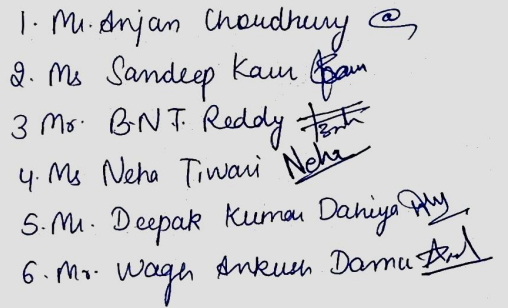 1. Mr. Anjan Choudhury
2. Ms Sandeep Kaur
3 Mr. B.N.T. Reddy
4. Ms Neha Tiwari Neha
5. Mr. Deepak Kumar Dahiya
6. Mr. Wagh Ankush Damu